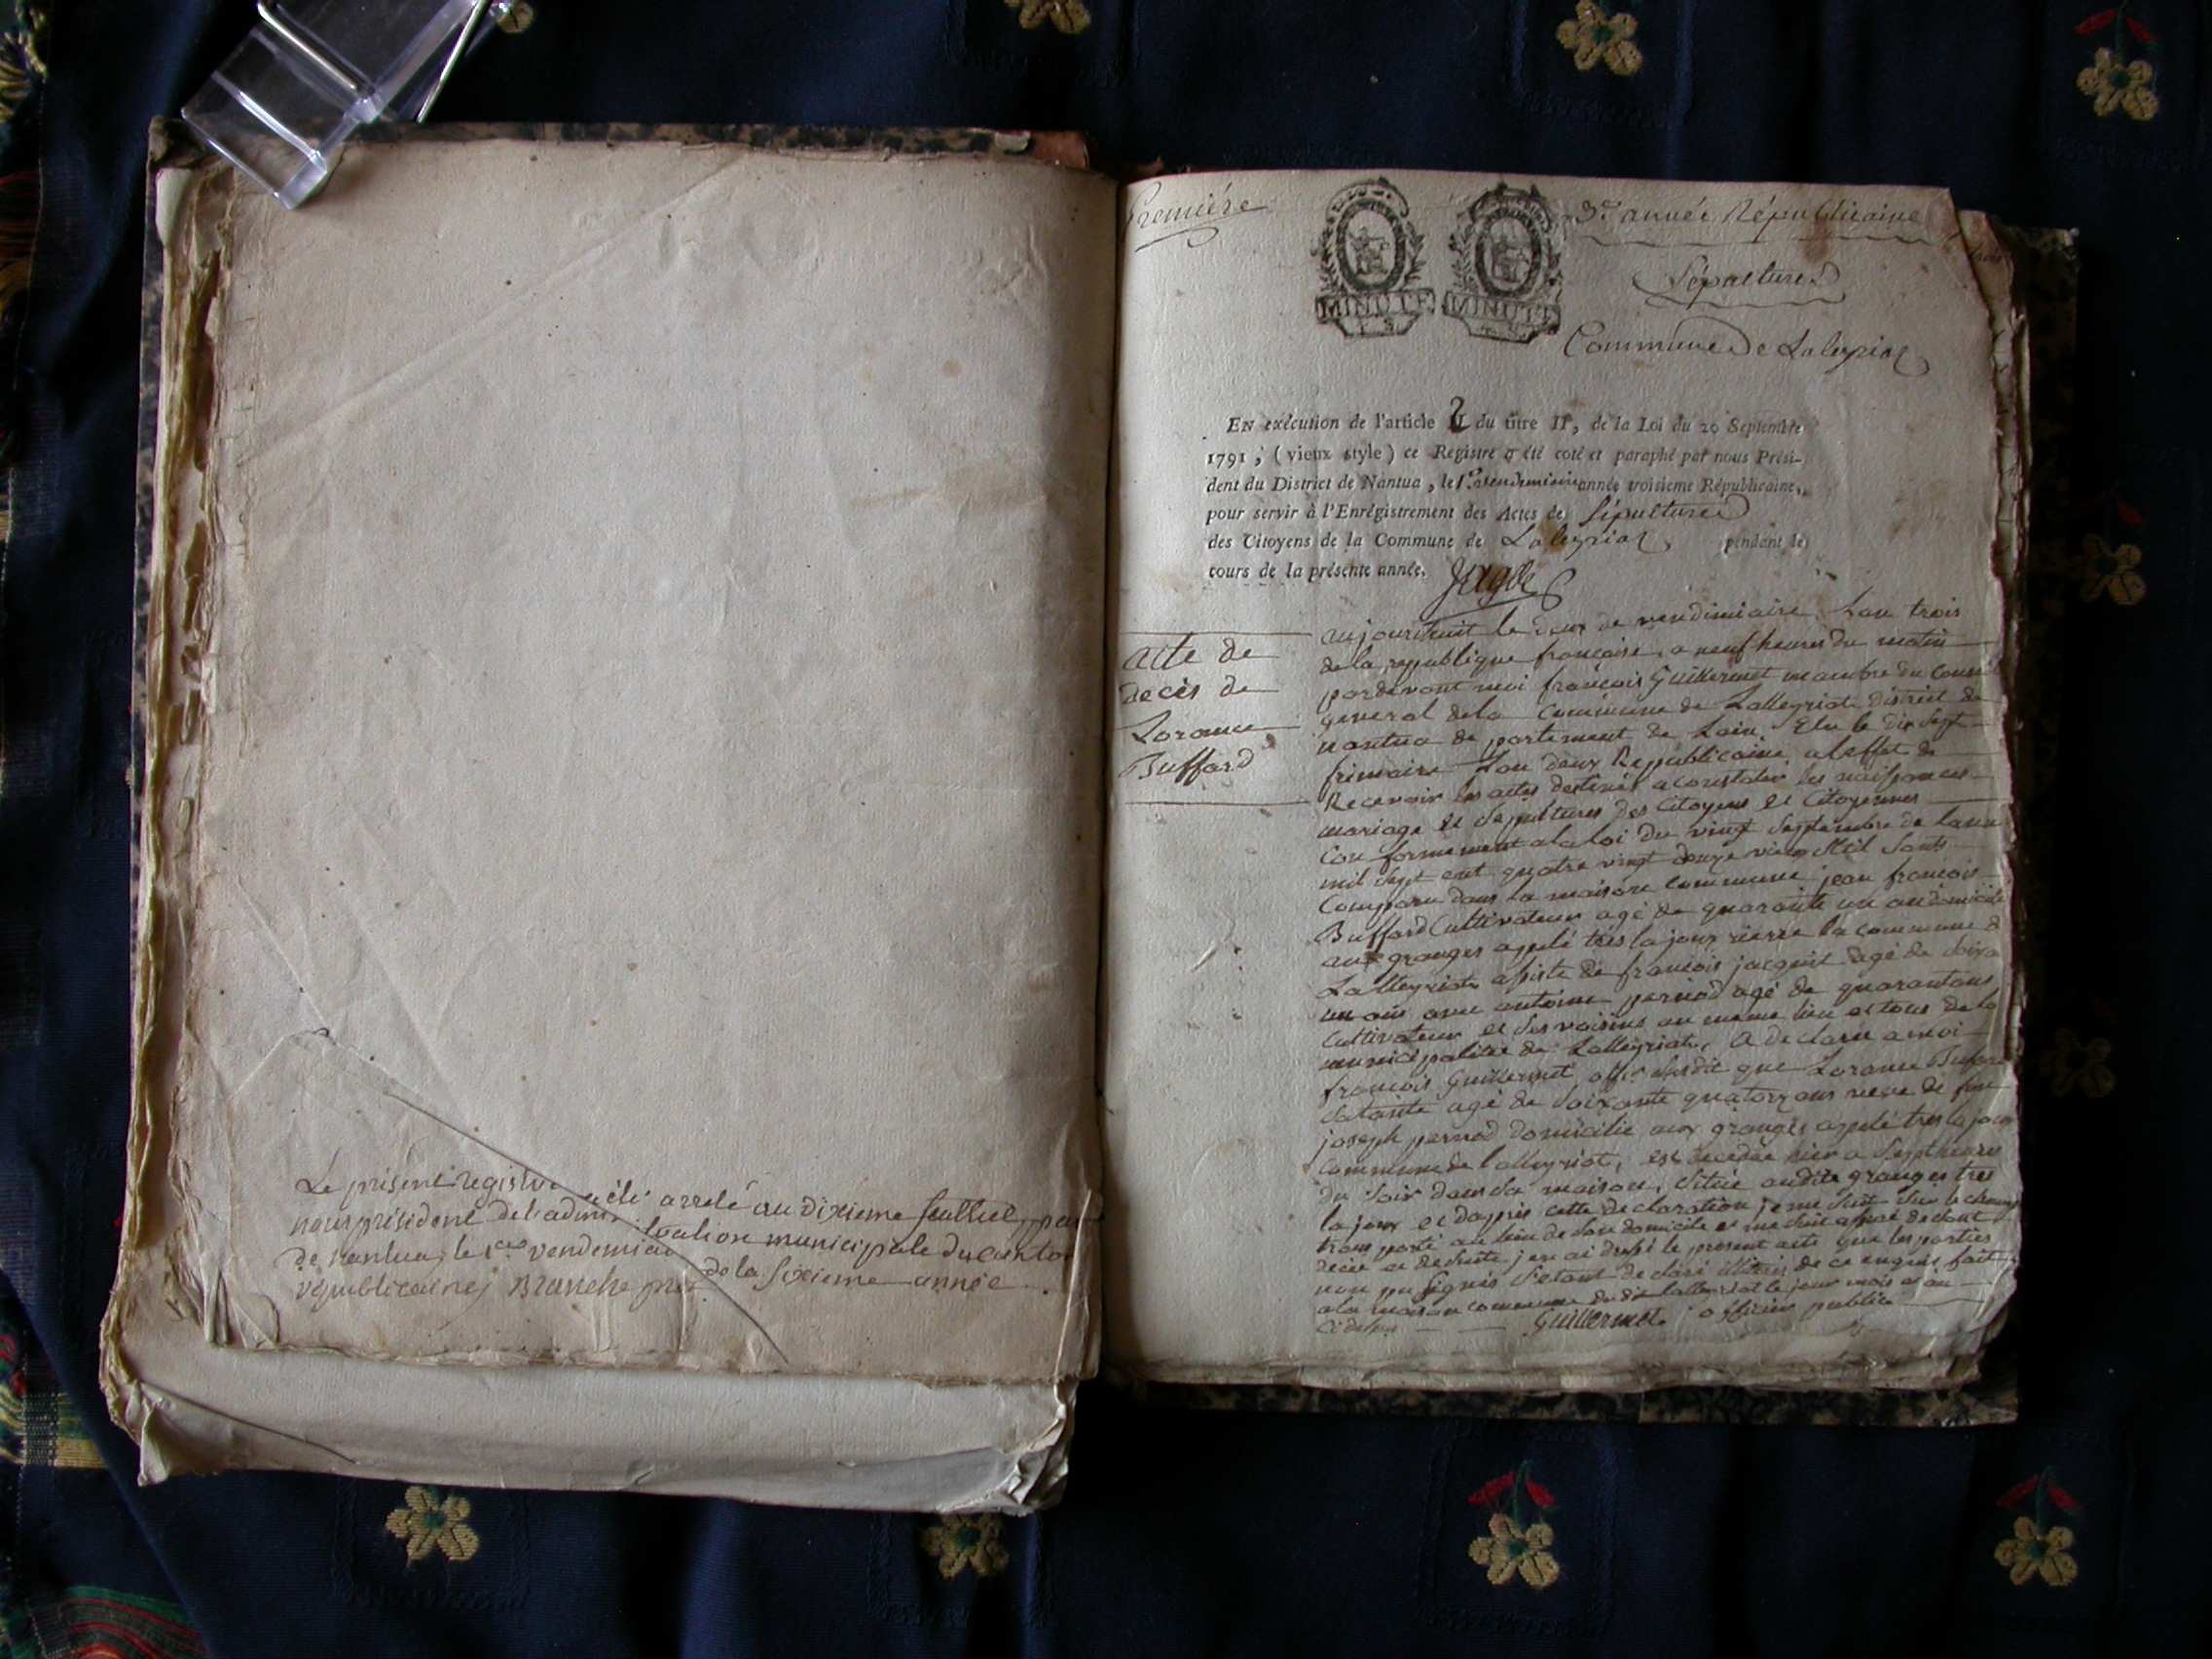 Le présent registre a été arrelé au dixieme feulliet, par
nous président de l'administration municipale du canton
de nantua, le 1er vendemiaire de la sixieme année
républicaine, Branche pret
Premiére
MINUTE
MINUTE
3e année Républicaine
Sépultures
Commune de Laleyriat
EN exécution de l'article 2 du titre II, de la Loi du 20 Septembre
1791, (vieux style) ce Registre a été coté et paraphé par nous Prési-
dent du District de Nantua, le 1er vendemiaire année troisieme Républicaine,
pour servir à l'Enrégistrement des Actes de Sépultures
des Citoyens de la Commune de Laleyriat, pendant le
cours de la présente année.
acte de
decès de
Lorance
Buffard
aujourdhuit le deux de vendimiaire Lan trois
de la republique francaise, a neuf heures du matin
pardevant moi francois Guillermet membre du Conseil
general dela commune de Lalleyriat district de
nantua departement de Lain. Elu le dix sept
frimaire Lan deux Republicaine, aleffet de
Recevoir les actes destinés a constater les naissances
mariage et sepultures des Citoyens et Citoyennes
conformement alaloi du vingt septembre de lann
mil sept cent quatre vingt douze vieux stil sont
Comparu dans la maison commune jean francois
Buffard Cultivateur agé de quarante un an domicilie
aux granges appelé trés la joux riere la commune d
Lalleyriat assiste de francois jacquit agé de soixa
un ans avec antoine pernod agé de quarantans
Cultivateur et ses voisins au meme lieu et tous de la
municipalitée de Lalleyriat, a declaré a moi
francois Guillermet offi. susdit que Lorance Bufard
sa tante agé de soixante quatorz ans veve de feu
joseph pernod domicilie aux granges appelé tres la joux
commune de lalleyriat, est decedée hier a sept heures
du soir dans sa maison, située audite granges tres
la joux et dapres cette declaration je me suit sur le champ
transporté au lieu de son domicile et me suit assuré de dont
decée et de suite j en ai dressé le present acte que les parties
non pu signés s'etant declaré illitéres de ce enquis fait
a la maison commune du dit lalleyriat le jour mois et an
ci desus Guillermet officier public